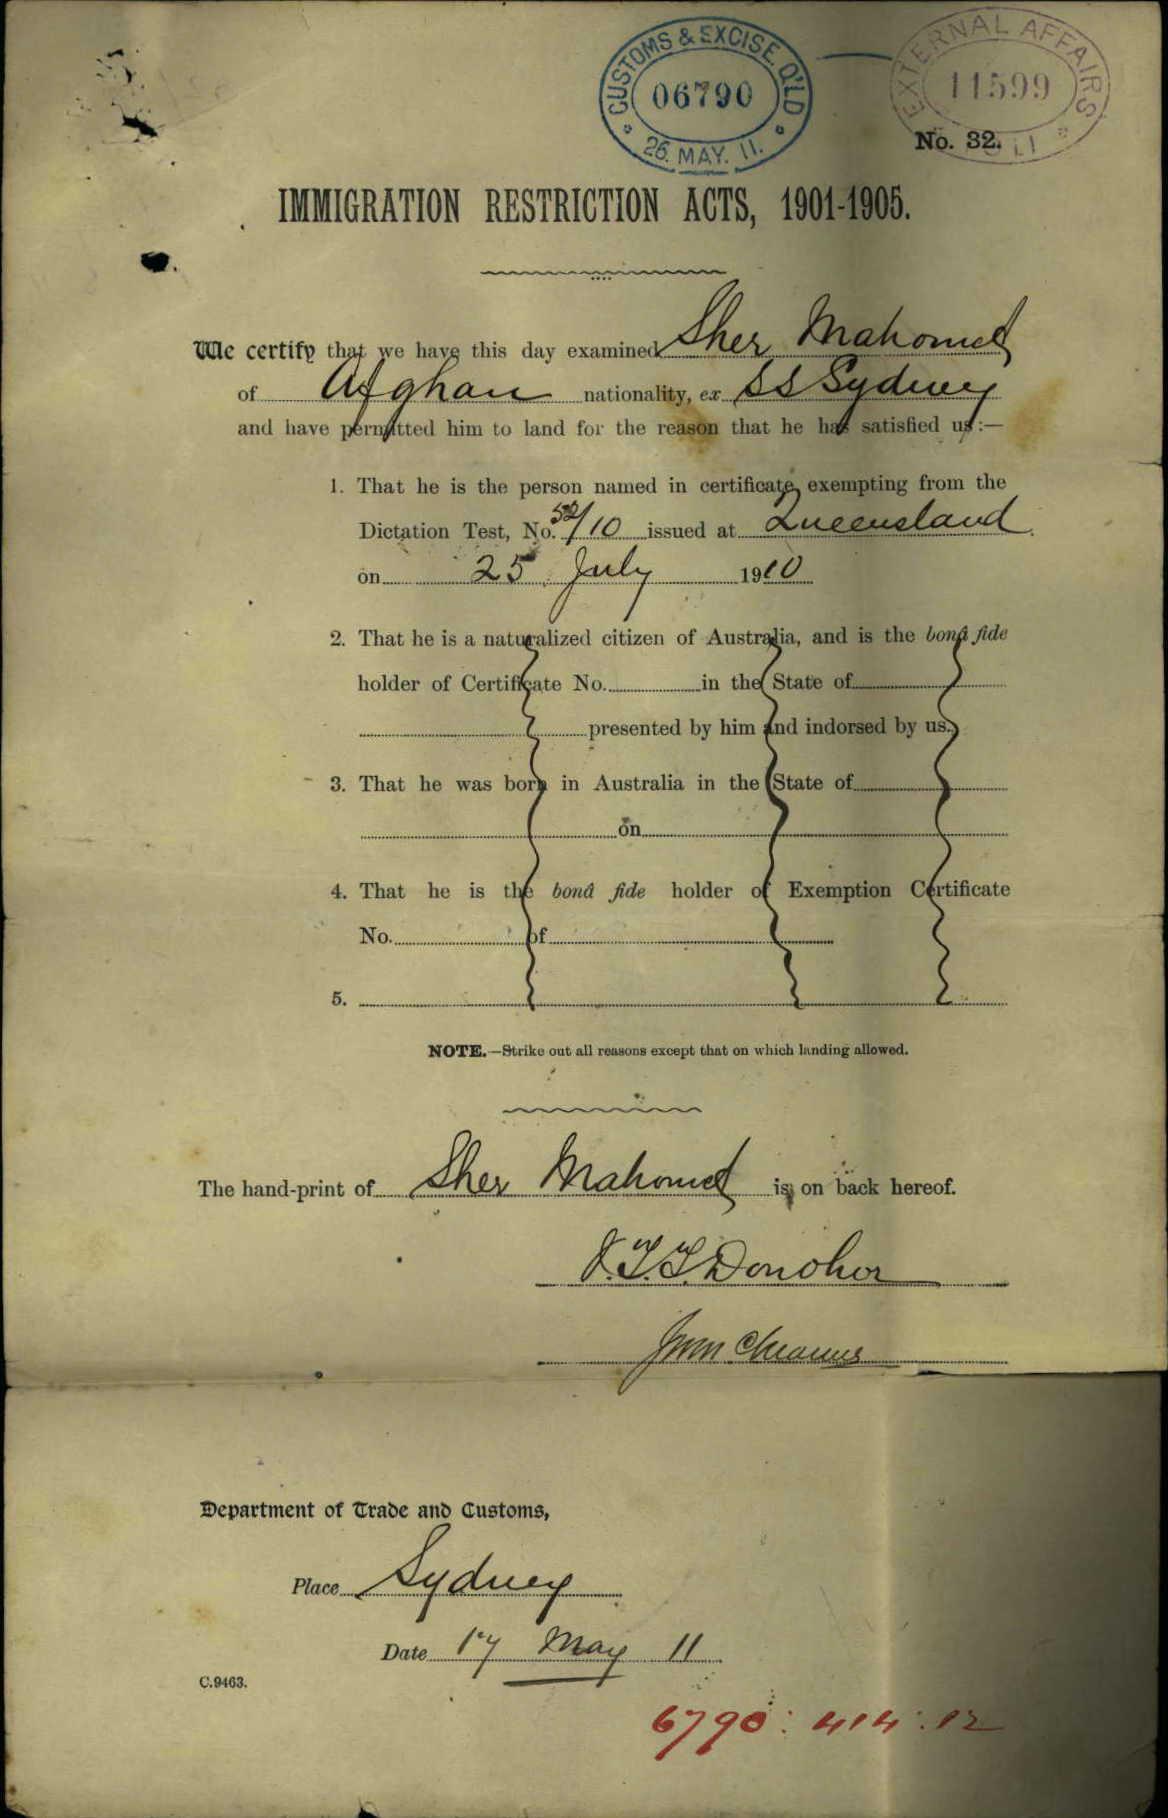 CUSTOMS & EXCISE. Q'LD
06790
26. MAY. 11.
EXTERNAL AFFAIRS
11599
No. 32.
IMMIGRATION RESTRICTION ACTS, 1901-1905.
We certify that we have this day examined Sher Mahomed
of Afghan nationality, ex SS Sydney
and have permitted him to land for the reason that he has satisfied us:—
1. That he is the person named in certificate exempting from the
Dictation Test, No. 52/10 issued at Queensland
on 25 July 1910
2. That he is a naturalized citizen of Australia, and is the bonâ fide
holder of Certificate No. in the State of
presented by him and indorsed by us.
3. That he was born in Australia in the State of
on
4. That he is the bonâ fide holder of Exemption Certificate
No. of
5.
NOTE.—Strike out all reasons except that on which landing allowed.
The hand-print of Sher Mahomed is on back hereof.
J.T.T. Donohoe
Department of Trade and Customs,
Place Sydney
Date 17 May 11
C.9463.
6790: 414: 12